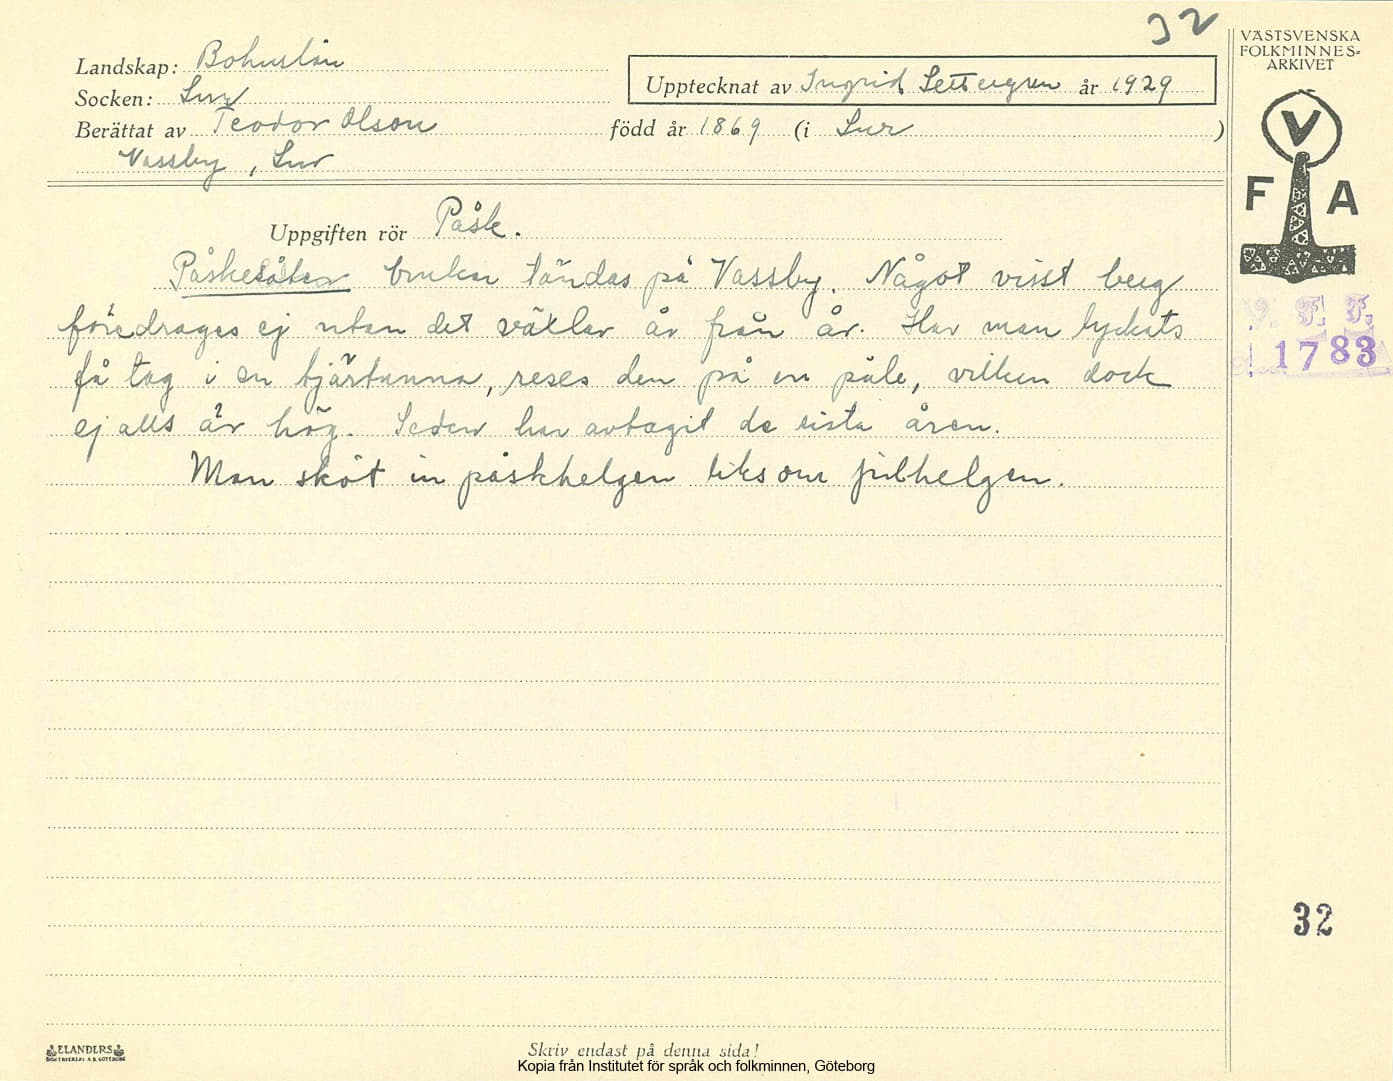 32
VÄSTSVENSKA
FOLKMINNES=
ARKIVET
Landskap: Bohuslän
Upptecknat av Ingrid Settergren år 1929
Socken: Lur
Berättat av Teodor Olson född år 1869 (i Lur )
Vassby, Lur
V
F A
Uppgiften rör Påsk.
Påskelåtar brukar tändas på Vassby. Något visst berg
föredrages ej utan det växlar år från år. Har man lyckats
få tag i en tjärtunna, reses den på en påle, vilken dock
ej alls är hög. Seden har avtagit de sista åren.
Man sköt in påskhelgen liksom julhelgen.
V. F. F.
1783
32
ELANDERS
BOKTRYCKERI A.B. GÖTEBORG
Skriv endast på denna sida!
Kopia från Institutet för språk och folkminnen, Göteborg